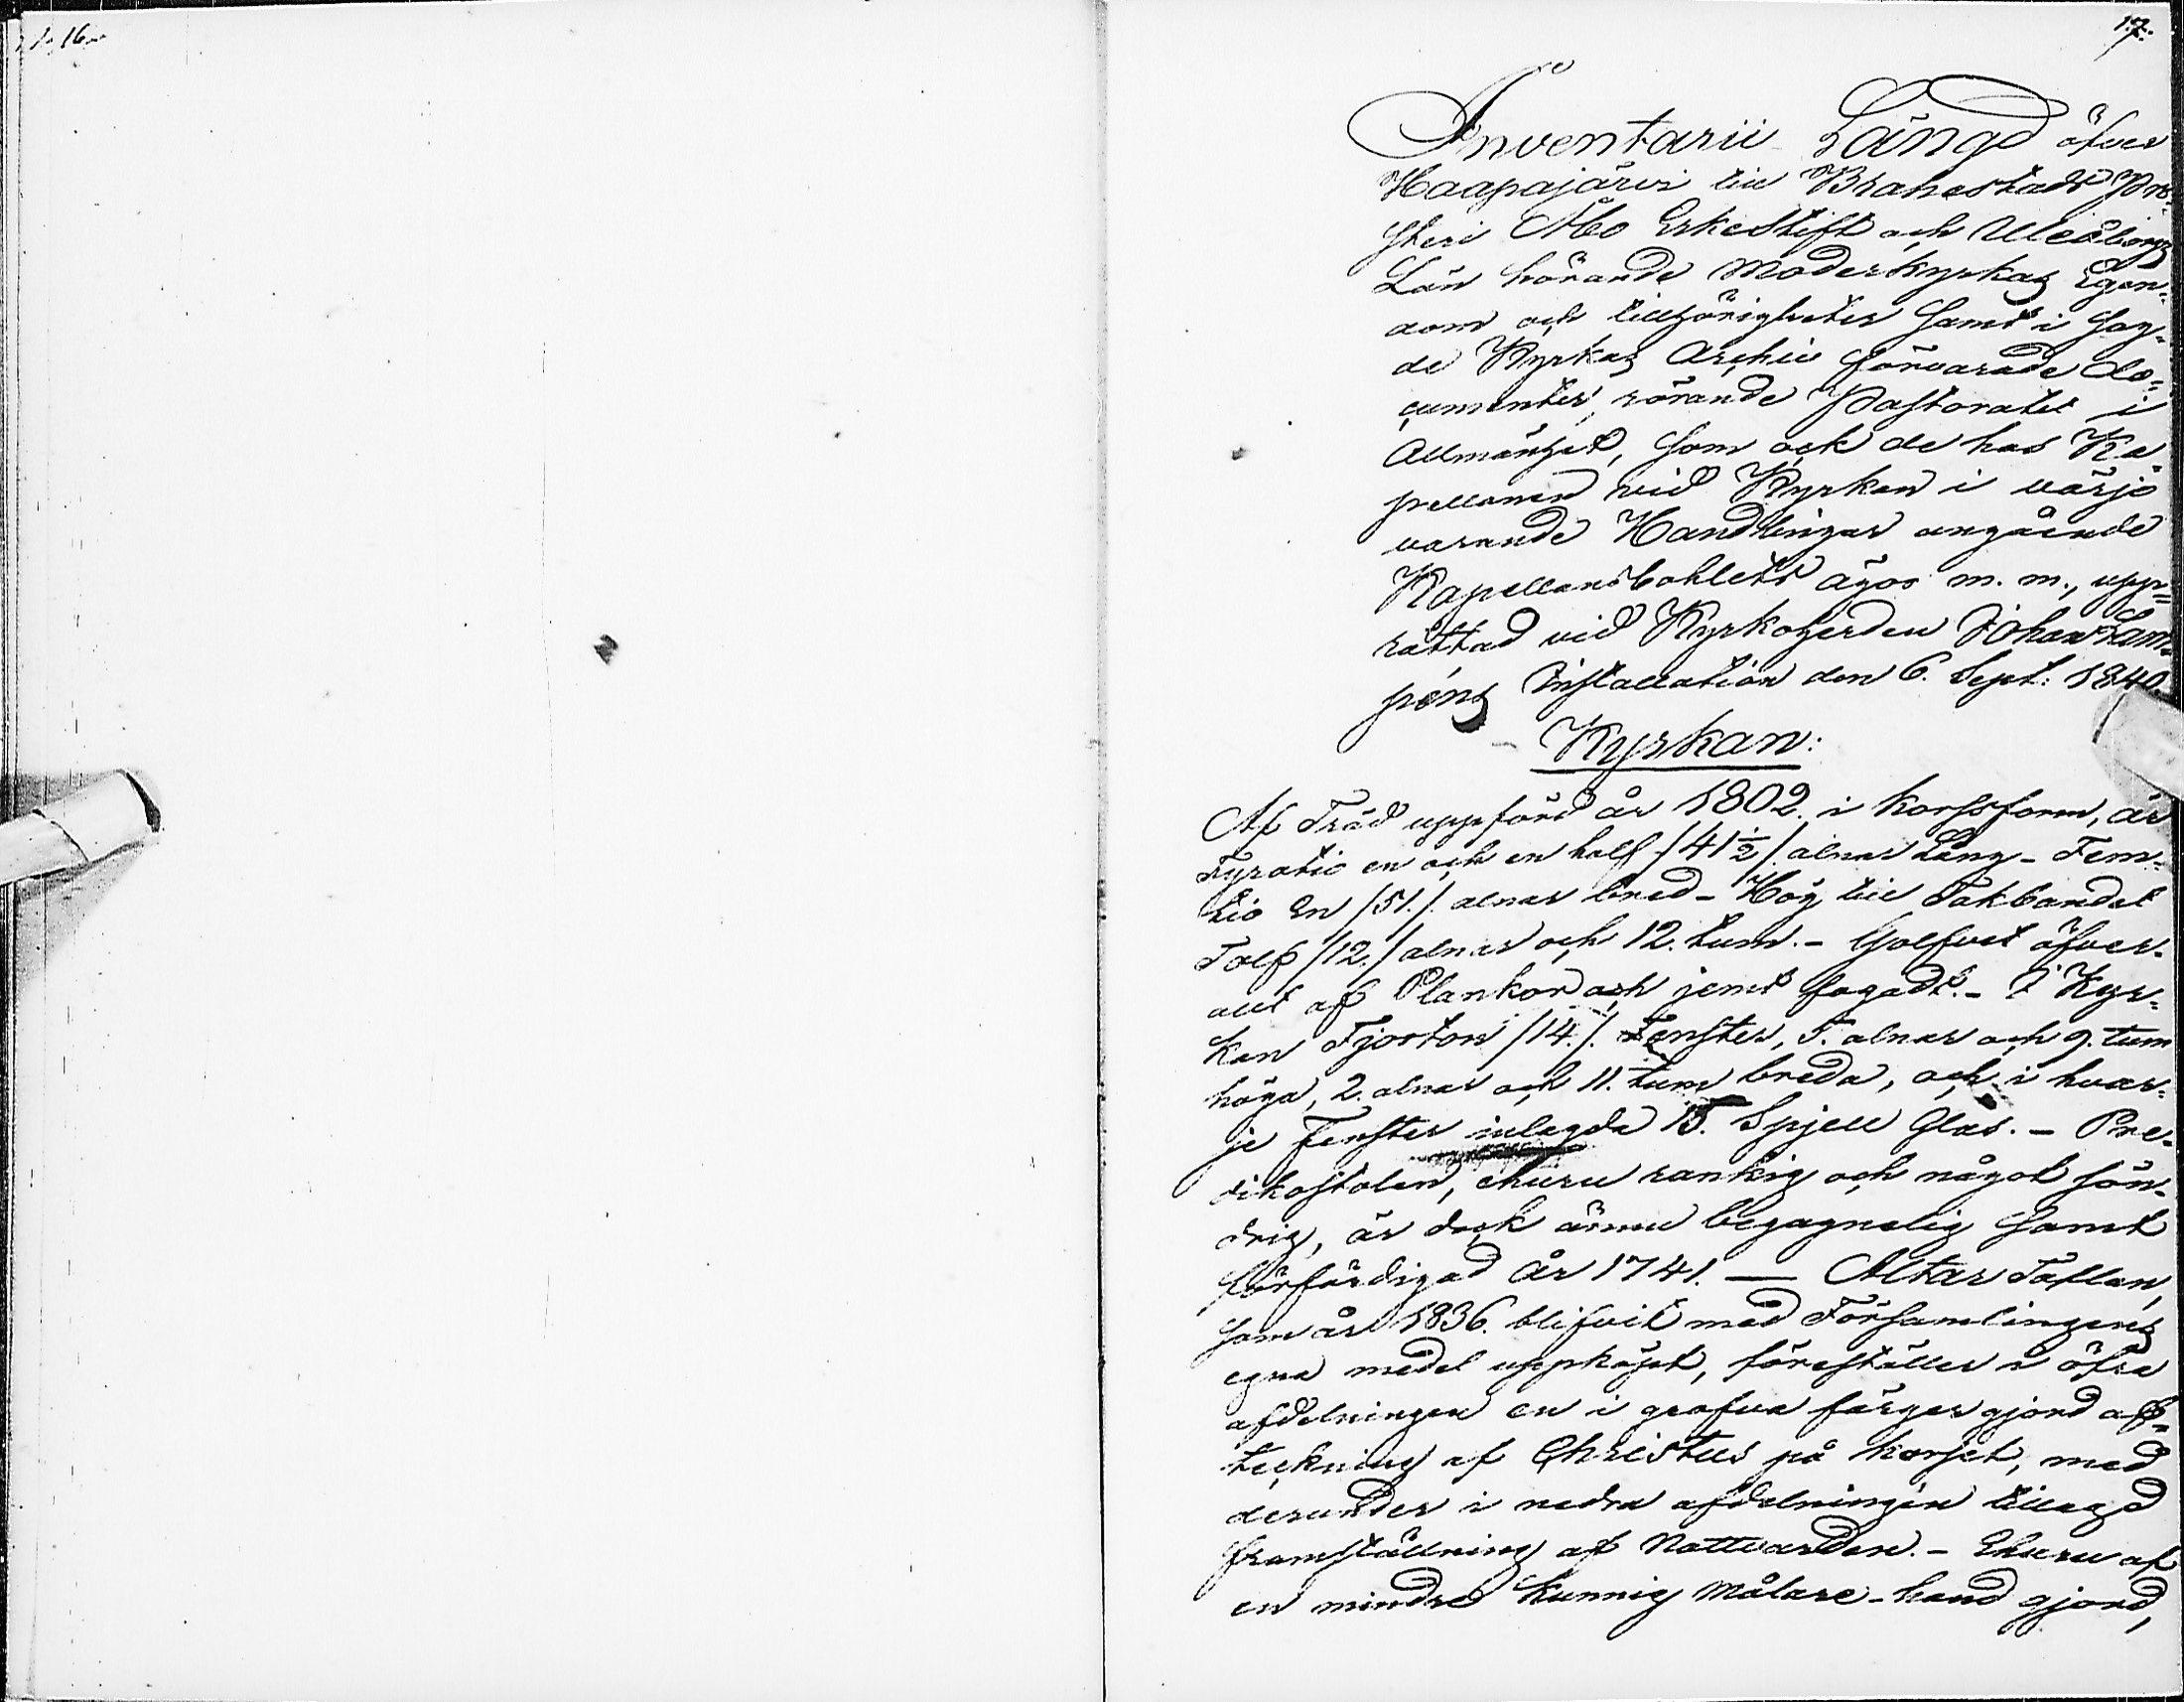 16.
17.
Inventarii Längd öfver
Haapajärvi till Brahestads Pro-
steri Åbo Erkestift och Uleåborgs
Län hörande Moderkyrkas Egen-
dom och tillhörigheter samt i sag-
de Kyrkas Archiv förvarade do-
cumenter, rörande Pastoratet i
Allmänhet, som ock de hos Ka-
pellanen vid Kyrkan i värjo
varande Handlingar angående
Kapellansbohlets ägor m. m., upp-
rättad vid Kyrkoherden Johan Lim-
péns Installation den 6. Sept: 1840.
Kyrkan:
Af Träd uppförd år 1802. i korssform, är
Fyratio en och en half /41½/ alnar lång - Fem-
tio En /51./ alnar bred - Hög till Takbandet
Tolf /12./ alnar och 12. tum. - Golfvet öfver-
allt af Plankor och jemt fogadt. - I Kyr-
kan Fjorton /14./ Fenster, 5. alnar och 9. tum
höga, 2. alnar och 11. tum breda, och i hvar-
je Fenster inlagda 15. Spjell Glas. - Pre-
dikostolen, ehuru rankig och något sön-
drig, är dock ännu begagnelig samt
förfärdigad År 1741. — Altar Taflan,
som år 1836. blifvit med Församlingens
egna medel uppköpt, föreställer i öfra
afdelningen en i grofva färger gjord af-
teckning af Christus på korset, med
derunder i nedra afdelningen tillagd
framställning af Nattvarden. - Ehuru af
en mindre kunnig Målare-hand gjord,